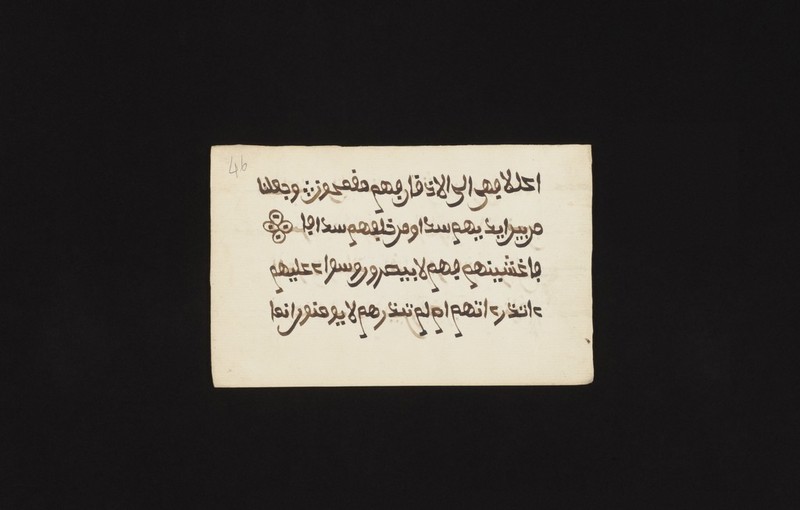 46
اغللا فهى الى الاذقان فهم مقمحون وجعلنا
من بين ايديهم سدا ومن خلفهم سدا فا
فاغشينهم فهم لا يبصرون وسوا عليهم
ءانذرتهم ام لم تنذرهم لا يومنون انما